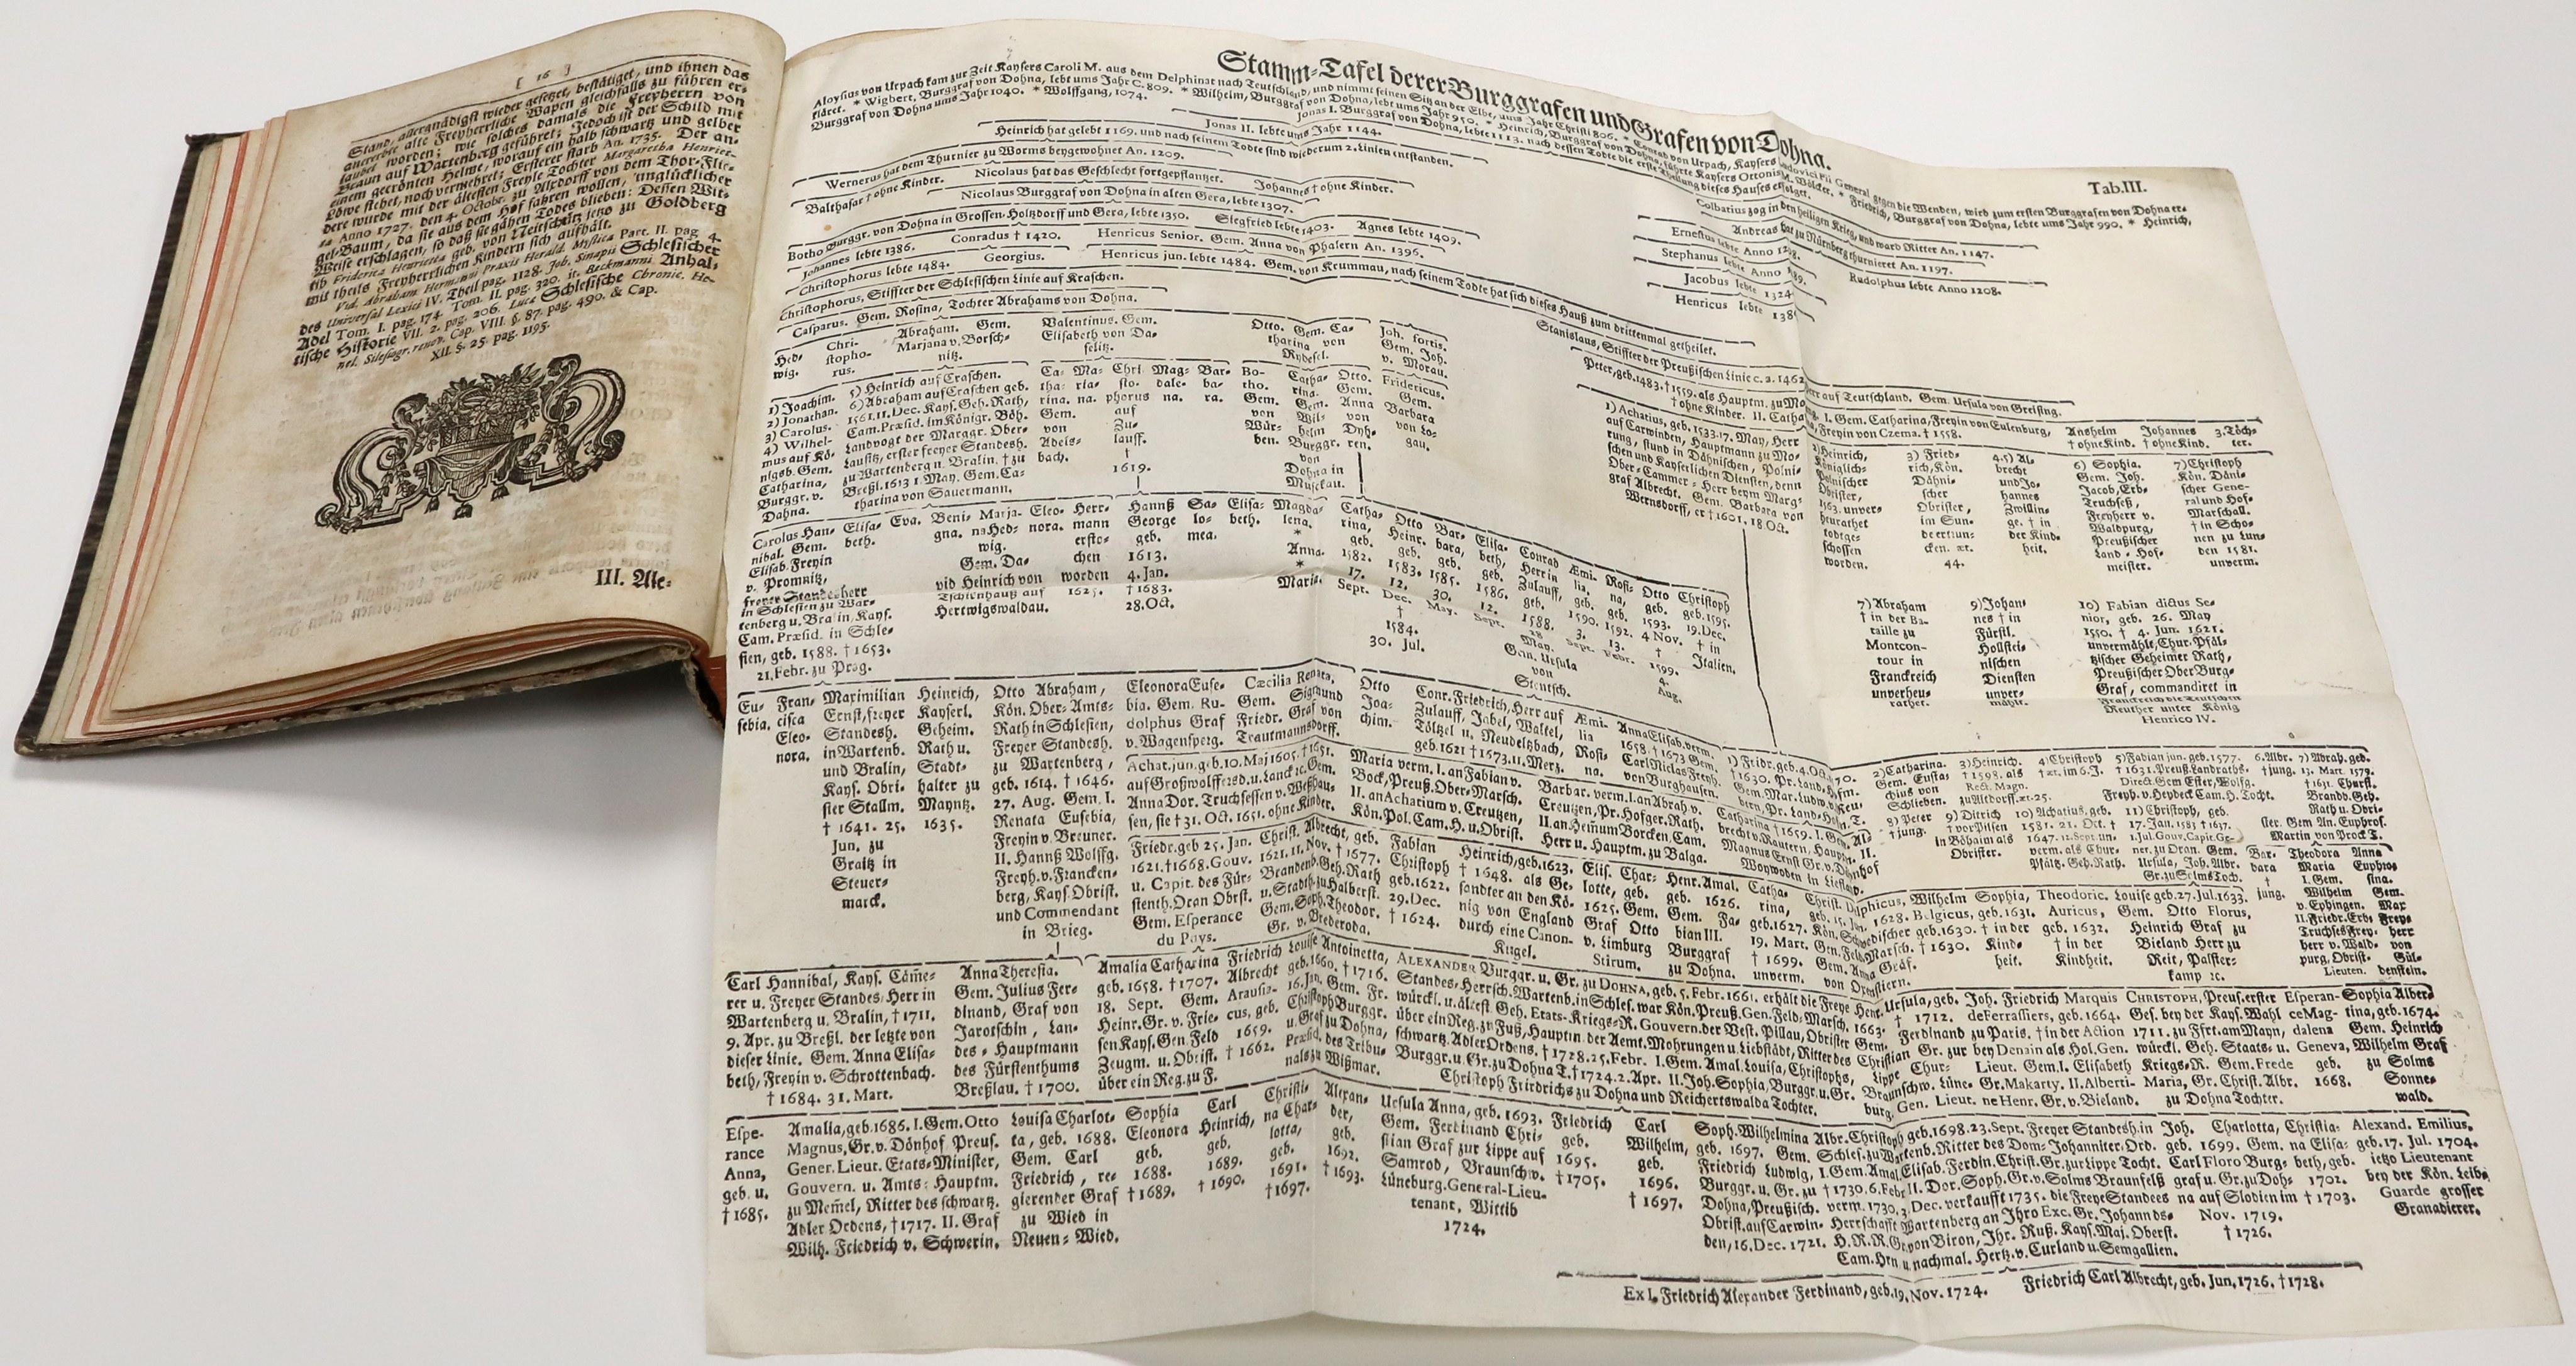 [ 16 ]
Stand, allergnädigst wieder gesetzet, bestätiget, und ihnen das
alte Freyherrliche Wapen gleichfalls zu führen er-
laubet worden; wie solches damals die Freyherrn von
Braun auf Wartenberg geführet; Jedoch ist der Schild mit
einem gecrönten Helme, worauf ein halb schwartz und gelber
Löwe stehet, noch vermehret; Ersterer starb An. 1735. Der an-
dere wurde mit der ältesten Freyle Tochter Margaretha Henriet-
ta Anno 1727. den 4. Octobr. zu Alxdorff von dem Thor-Flie-
gel-Baum, da sie aus dem Hof fahren wollen, unglücklicher
Weise erschlagen, so daß sie gähen Todes blieben: Dessen Wit-
tib Friderica Henrietta geb. von Neitschütz jetzo zu Goldberg
mit theils Freyherrlichen Kindern sich aufhält.
Vid. Abraham Hermanni Praxis Herald. Mystica Part. II. pag. 4.
des Universal Lexici IV. Theil pag. 1128. Joh. Sinapii Schlesischer
Adel Tom. I. pag. 174. Tom. II. pag. 320. it. Beckmanni Anhal-
tische Historie VII. 2. pag. 206. Lucæ Schlesische Chronic. He-
nel. Silesiogr. renov. Cap. VIII. §. 87. pag. 490. & Cap.
XII. §. 25. pag. 1195.
III. Ale-
Stamm-Tafel derer Burggrafen und Grafen von Dohna.
Tab. III.
Aloysius von Urpach kam zur Zeit Kaysers Caroli M. aus dem Delphinat nach Teutschland, und nimmt seinen Sitz an der Elbe, ums Jahr Christi 806. * Conrad von Urpach, Kaysers Ludovici Pii General gegen die Wenden, wird zum ersten Burggrafen von Dohna er-
kläret. * Wigbert, Burggraf von Dohna, lebt ums Jahr C. 809. * Wilhelm, Burggraf von Dohna, lebt ums Jahr 950. * Heinrich, Burggraf von Dohna, führte Kaysers Ottonis M. Völcker. * Friedrich, Burggraf von Dohna, lebte ums Jahr 990. * Heinrich,
Burggraf von Dohna ums Jahr 1040. * Wolffgang, 1074.
Jonas I. Burggraf von Dohna, lebte 1113. nach dessen Tode die erste Theilung dieses Hauses erfolget.
Jonas II. lebte ums Jahr 1144.
Colbatius zog in den heiligen Krieg, und ward Ritter An. 1147.
Heinrich hat gelebt 1169. und nach seinem Todte sind wiederum 2. Linien entstanden.
Andreas hat zu Nürnberg thurnieret An. 1197.
Wernerus hat dem Thurnier zu Worms beygewohnet An. 1209.
Ernestus lebte Anno
Rudolphus lebte Anno 1208.
Balthasar † ohne Kinder. Nicolaus hat das Geschlecht fortgepflantzet. Johannes † ohne Kinder.
Stephanus lebte Anno
Nicolaus Burggraf von Dohna in alten Gera, lebte 1307.
Jacobus lebte 1324
Botho Burggr. von Dohna in Grossen-Holtzdorff und Gera, lebte 1350. Siegfried lebte 1403. Agnes lebte 1409.
Henricus lebte 138
Johannes lebte 1386. Conradus † 1420. Henricus Senior. Gem. Anna von Phalern An. 1396.
Christophorus lebte 1484. Georgius. Henricus jun. lebte 1484. Gem. von Krummau, nach seinem Todte hat sich dieses Hauß zum drittenmal getheilet.
Christophorus, Stiffter der Schlesischen Linie auf Kraschen.
Stanislaus, Stiffter der Preußischen Linie c. a. 1462
Herr auf Teutschland. Gem. Ursula von Greising.
Casparus. Gem. Rosina, Tochter Abrahams von Dohna.
Hed-
wig.
Chri-
stopho-
rus.
Abraham. Gem.
Marjana v. Borsch-
nitz.
Valentinus. Gem.
Elisabeth von Da-
selitz.
Otto. Gem. Ca-
tharina von
Rydesel.
Joh. fortis.
Gem. Joh.
v. Morau.
1) Joachim.
2) Jonathan.
3) Carolus.
4) Wilhel-
mus auf Kö-
nigsb. Gem.
Catharina,
Burggr. v.
Dohna.
5) Heinrich auf Craschen.
6) Abraham auf Craschen geb.
1561. 11. Dec. Kays. Geh. Rath,
Cam. Præsid. im Königr. Böh.
Landvogt der Marggr. Ober-
Lausitz, erster freyer Standesh.
zu Wartenberg u. Bralin. † zu
Breßl. 1613 1. May. Gem. Ca-
tharina von Sauermann.
Ca-
tha-
rina.
Gem.
von
Adels-
bach.
Ma-
ria-
na.
Chri-
sto-
phorus
auf
Zu-
lauff.
†
1619.
Mag-
dale-
na.
Bar-
ba-
ra.
Bo-
tho.
Gem.
von
Wür-
ben.
Catha-
rina.
Gem.
Wil-
helm
Burggr.
von
Dohna in
Musckau.
Otto.
Gem.
Anna
von
Dyh-
ren.
Fridericus.
Gem.
Barbara
von Lo-
gau.
Peter, geb. 1483. † 1559. als Hauptm. zu Mo
I. Gem. Catharina, Freyin von Eulenburg,
† ohne Kinder. II. Catha
Freyin von Czema. † 1558.
Anshelm
† ohne Kind.
Johannes
† ohne Kind.
3. Töch-
ter.
1) Achatius, geb. 1533. 17. May, Herr
auf Carwinden, Hauptmann zu Mo-
rung, stund in Dähnischen, Polni-
schen und Kayserlichen Diensten, denn
Ober-Cammer-Herr beym Marg-
graf Albrecht. Gem. Barbara von
Wernsdorff, er † 1601. 18. Oct.
2) Heinrich,
Königlich-
Polnischer
Obrister,
1563. unver-
heurathet
todtge-
schossen
worden.
3) Fried-
rich, Kön.
Dähni-
scher
Obrister,
im Sun-
de ertrun-
cken. æt.
44.
4. 5) Al-
brecht
und Jo-
hannes
Zwillin-
ge. † in
der Kind-
heit.
6) Sophia.
Gem. Joh.
Jacob, Erb-
Truchseß,
Freyherr v.
Waldpurg,
Preußischer
Land-Hof-
meister.
7) Christoph
Kön. Däni-
scher Gene-
ral und Hof-
Marschall.
† in Scho-
nen zu Lun-
den 1581.
unverm.
7) Abraham
† in der Ba-
taille zu
Montcon-
tour in
Franckreich
unverheu-
rathet.
9) Johan-
nes † in
Fürstl.
Hollstei-
nischen
Diensten
unver-
mählt.
10) Fabian dictus Se-
nior, geb. 26. May
1550. † 4. Jun. 1621.
unvermählt, Chur-Pfäl-
tzischer Geheimer Rath,
Preußischer Ober Burg-
Graf, commandiret in
Franckreich die Teutschen
Reuther unter König
Henrico IV.
Carolus Han-
nibal. Gem.
Elisab. Freyin
v. Promnitz,
freyer Standesherr
in Schlesien zu War-
tenberg u. Bralin, Kays.
Cam. Præsid. in Schle-
sien, geb. 1588. † 1653.
21. Febr. zu Prag.
Elisa-
beth.
Eva.
Beni-
gna.
Marja-
na Hed-
wig.
Gem. Da-
vid Heinrich von
Tschienhauß auf
Hertwigswaldau.
Eleo-
nora.
Herr-
mann
ersto-
chen
worden
1625.
Hannß
George
geb.
1613.
4. Jan.
† 1683.
28. Oct.
Sa-
lo-
mea.
Elisa-
beth.
Magda-
lena.
*
Anna.
*
Maria.
Catha-
rina,
geb.
1582.
17.
Sept.
Otto
Heinr.
geb.
1583.
12.
Dec.
†
1584.
30. Jul.
Bar-
bara,
geb.
1585.
30.
May.
Elisa-
beth,
geb.
1586.
12.
Sept.
Conrad
Herr in
Zulauff,
geb.
1588.
28
May.
Gem. Ursula
von
Stentsch.
Æmi-
lia,
geb.
1590.
3.
Sept.
Rosi-
na,
geb.
1592.
13.
Febr.
Otto
geb.
1593.
4 Nov.
†
1599.
4.
Aug.
Christoph
geb. 1595.
19. Dec.
† in
Italien.
Eu-
sebia.
Fran-
cisca
Eleo-
nora.
Maximilian
Ernst, freyer
Standesh.
in Wartenb.
und Bralin,
Kays. Obri-
ster Stallm.
† 1641. 25.
Jun. zu
Graitz in
Steuer-
marck.
Heinrich,
Kayserl.
Geheim.
Rath u.
Stadt-
halter zu
Mayntz.
1635.
Otto Abraham,
Kön. Ober-Amts-
Rath in Schlesien,
Freyer Standesh.
zu Wartenberg,
geb. 1614. † 1646.
27. Aug. Gem. I.
Renata Eusebia,
Freyin v. Breuner.
II. Hannß Wolffg.
Freyh. v. Francken-
berg, Kays. Obrist.
und Commendant
in Brieg.
Eleonora Euse-
bia. Gem. Ru-
dolphus Graf
v. Wagensperg.
Cæcilia Renata.
Gem. Sigmund
Friedr. Graf von
Trautmannsdorff.
Otto
Joa-
chim.
Conr. Friedrich, Herr auf
Zulauff, Jabel, Waltel,
Töltzel u. Neudeltzbach,
geb. 1621 † 1573. 11. Merz.
Æmi-
lia
Rosi-
na.
Anna Elisab. verm.
1658. † 1673 Gem.
Carl Niclas Freyh.
von Burghausen.
Achat. jun. geb. 10. Maj 1605. † 1651.
auf Großwolffersd. u. Lanck ꝛc. Gem.
Anna Dor. Truchsessen v. Wetzhau-
sen, sie † 31. Oct. 1651. ohne Kinder.
Maria verm. I. an Fabian v.
Bock, Preuß. Ober-Marsch.
II. an Acharium v. Creutzen,
Kön. Pol. Cam. H. u. Obrist.
Barbar. verm. I. an Abrah v.
Creutzen, Pr. Hofger. Rath.
II. an Heinum Borcken, Cam.
Herr u. Hauptm. zu Balga.
Catharina † 1659. I. Gem. Al-
brecht v. Rautern, Hauptm. II.
Magnus Ernst Gr. v. Dönhof
Woywoden in Liefland.
2) Catharina.
Gem. Eusta-
chius von
Schlieben.
3) Heinrich.
† 1598. als
Rect. Magn.
zu Altdorff. æt. 25.
4) Christoph
† æt. im 6. J.
5) Fabian jun. geb. 1577.
† 1631. Preuß. Landraths-
Direct. Gem Ester, Wolfg.
Freyh. v. Heydeck Cam. H. Tocht.
6. Albr.
† jung.
7) Abrah. geb.
13. Mart. 1579.
† 1631. Churfl.
Brandb. Geh.
Rath u. Obri-
ster. Gem An. Euphros.
Martin von Prock T.
8) Peter
† jung.
9) Ditrich
† vor Pilsen
in Böhaim als
Obrister.
10) Achatius, geb.
1581. 21. Oct. †
1647. 12. Sept. un-
verm. als Chur-
Pfältz. Geh. Rath.
11) Christoph, geb.
17. Jan. 1583 † 1637.
1. Jul. Gouv. Capit. Ge-
ner. zu Oran. Gem.
Ursula, Joh. Albr.
Gr. zu Solms Toch.
Bar-
bara
†
jung.
Theodora
Maria
I. Gem.
Wilhelm
v. Eppingen.
II. Friedr. Erb-
Truchses Frey-
herr v. Wald-
purg, Obrist-
Lieuten.
Anna
Euphro-
sina.
Gem.
Max
Frey-
herr
von
Gül-
denstein.
Friedr. geb 25. Jan.
1621. † 1668. Gouv.
u. Capit. des Für-
stenth. Oran Obrst.
Gem. Esperance
du Puys.
Christ. Albrecht, geb.
1621. 11. Nov. † 1677.
Brandenb. Geh. Rath
u. Stadth. zu Halberst.
Gem. Soph. Theodor.
Gr. v. Brederoda.
Fabian
Christoph
geb. 1622.
29. Dec.
† 1624.
Heinrich, geb. 1623.
† 1648. als Ge-
sandter an den Kö-
nig von England
durch eine Canon-
Kugel.
Elis. Char-
lotte, geb.
1625. Gem.
Graf Otto
v. Limburg
Stirum.
Henr. Amal.
geb. 1626.
Gem. Fa-
bian III.
Burggraf
zu Dohna.
Catha-
rina,
geb. 1627.
19. Mart.
† 1699.
unverm.
Wilhelm
Belgicus,
geb. 1630.
† 1630.
Sophia,
geb. 1631.
† in der
Kind-
heit.
Theodoric.
Auricus,
geb. 1632.
† in der
Kindheit.
Louise geb. 27. Jul. 1633.
Gem. Otto Florus,
Heinrich Graf zu
Bieland Herr zu
Reit, Palster-
kamp ꝛc.
Carl Hannibal, Kays. Cam̃e-
rer u. Freyer Standes-Herr in
Wartenberg u. Bralin, † 1711.
9. Apr. zu Breßl. der letzte von
dieser Linie. Gem. Anna Elisa-
beth, Freyin v. Schrottenbach.
† 1684. 31. Mart.
Anna Theresia.
Gem. Julius Fer-
dinand, Graf von
Jarotschin, Lan-
des-Hauptmann
des Fürstenthums
Breßlau. † 1700.
Amalia Catharina
geb. 1658. † 1707.
18. Sept. Gem.
Heinr. Gr. v. Frie-
sen Kays. Gen. Feld
Zeugm. u. Obrist.
über ein Reg. zu F.
Friedrich
Albrecht
Arausia-
cus, geb.
1659.
† 1662.
Louise Antoinetta,
geb. 1660. † 1716.
16. Jan. Gem. Fr.
Christoph Burggr.
u. Graf zu Dohna,
Præsid. des Tribu-
nals zu Wißmar.
ALEXANDER Burggr. u. Gr. zu DOHNA, geb. 5. Febr. 1661. erhält die Freye
Standes-Herrsch. Wartenb. in Schles. war Kön. Preuß. Gen. Feld-Marsch.
würckl. u. ältest Geh. Etats-Kriegs-R. Gouvern. der Vest. Pillau, Obrister
über ein Reg. zu Fuß, Hauptm. der Aemt. Mohrungen u. Liebstädt, Ritter des
schwartz. Adler Ordens. † 1728. 25. Febr. I. Gem. Amal. Louisa, Christophs,
Burggr. u. Gr. zu Dohna T. † 1724. 2. Apr. II. Joh. Sophia, Burggr. u. Gr.
Christoph Friedrichs zu Dohna und Reichertswalda Tochter.
Joh. Friedrich Marquis
deFerrassiers, geb. 1664.
Ferdinand zu Paris. † in der Action
bey Denain als Hol. Gen.
Lieut. Gem. I. Elisabeth
Gr. Makarty. II. Alberti-
ne Henr. Gr. v. Bieland.
CHRISTOPH, Preus. erster
Ges. bey der Kays. Wahl
1711. zu Fkrt. am Mayn,
würckl. Geh. Staats- u.
Kriegs-R. Gem. Frede
Maria, Gr. Christ. Albr.
zu Dohna Tochter.
Esperan-
ce Mag-
dalena
Geneva,
geb.
1668.
Sophia Alber-
tina, geb. 1674.
Gem. Heinrich
Wilhelm Graf
zu Solms
Sonne-
wald.
Espe-
rance
Anna,
geb. u.
† 1685.
Amalia, geb. 1686. I. Gem. Otto
Magnus, Gr. v. Dönhof Preus.
Gener. Lieut. Etats-Minister,
Gouvern. u. Amts-Hauptm.
zu Mem̃el, Ritter des schwartz.
Adler Ordens, † 1717. II. Graf
Wilh. Friedrich v. Schwerin.
Louisa Charlot-
ta, geb. 1688.
Gem. Carl
Friedrich, re-
gierender Graf
zu Wied in
Neuen-Wied.
Sophia
Eleonora
geb.
1688.
† 1689.
Carl
Heinrich,
geb.
1689.
† 1690.
Christi-
na Char-
lotta,
geb.
1691.
† 1697.
Alexan-
der,
geb.
1692.
† 1693.
Ursula Anna, geb. 1693.
Gem. Ferdinand Chri-
stian Graf zur Lippe auf
Samrod, Braunschw.
Lüneburg. General-Lieu-
tenant, Wittib
1724.
Friedrich
geb.
1695.
† 1705.
Carl
Wilhelm,
geb.
1696.
† 1697.
Soph. Wilhelmina
geb. 1697. Gem.
Friedrich Ludwig,
Burggr. u. Gr. zu
Dohna, Preußisch.
Obrist. auf Carwin-
den, 16. Dec. 1721.
Albr. Christoph geb. 1698. 23. Sept. Freyer Standesh. in
Schles. zu Wartenb. Ritter des Dom-Johanniter-Ord.
I. Gem. Amal. Elisab. Ferdin. Christ. Gr. zur Lippe Tocht.
† 1730. 6. Febr. II. Dor. Soph. Gr. v. Solms Braunfelß
verm. 1730. 3. Dec. verkaufft 1735. die Freye Standes-
Herrschafft Wartenberg an Ihro Exc. Gr. Johann
H. R. R. Gr. von Biron, Ihr. Ruß. Kays. Maj. Oberst.
Cam. Hrn u. nachmal. Hertz. v. Curland u. Semgallien.
Joh. Charlotta,
geb. 1699. Gem.
Carl Floro Burg-
graf u. Gr. zu Doh-
na auf Slodien im
Nov. 1719.
† 1726.
Christia-
na Elisa-
beth, geb.
1702.
† 1703.
Alexand. Emilius,
geb. 17. Jul. 1704.
ietzo Lieutenant
bey der Kön. Leib-
Guarde grosser
Granadierer.
Ex I. Friedrich Alexander Ferdinand, geb. 19. Nov. 1724. Friedrich Carl Albrecht, geb. Jun. 1726. † 1728.